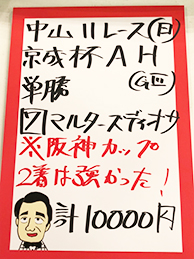 中山11レース(日)
京成杯AH
単勝 (GⅢ)
7マルターズディオサ
※阪神カップ
2着は強かった!
計10000円